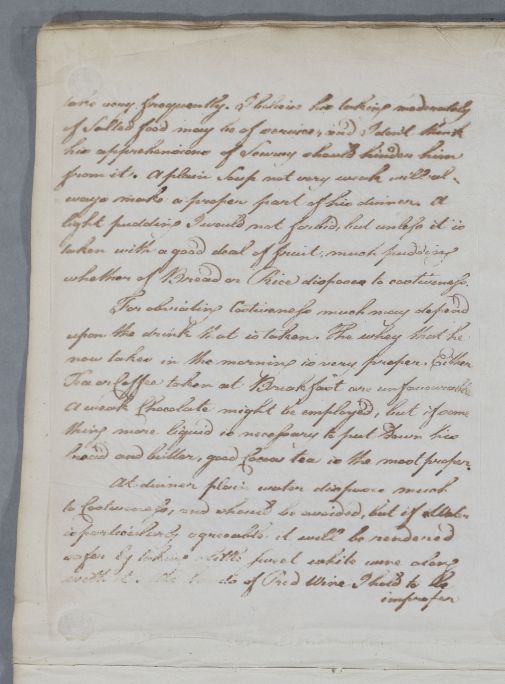 take very frequently. I believe his taking moderately
of Salted food may be of service, and I don't think
his apprehensions of Scurvy should hinder him
from it. A plain Soup not very weak will al-
ways make a proper part of his dinner. A
light pudding I would not forbid, but unless it is
taken with a good deal of fruit, much pudding
whether of Bread or Rice disposes to costiveness.
For obviating Costiveness much may depend
upon the drink that is taken. The whey that he
now takes in the morning is very proper. Either
Tea or Coffee taken at Breakfast are unfavourable
A weak Chocolate might be employed, but if some
thing more liquid is necessary to put down his
bread and butter, good Cocoa tea is the most proper.
At dinner plain water disposes much
to Costiveness, and should be avoided, but if Water
is particularly agreeable it will be rendered
safer by taking a little sweet white wine along
with it. All kinds of Red Wine I hold to be
improper